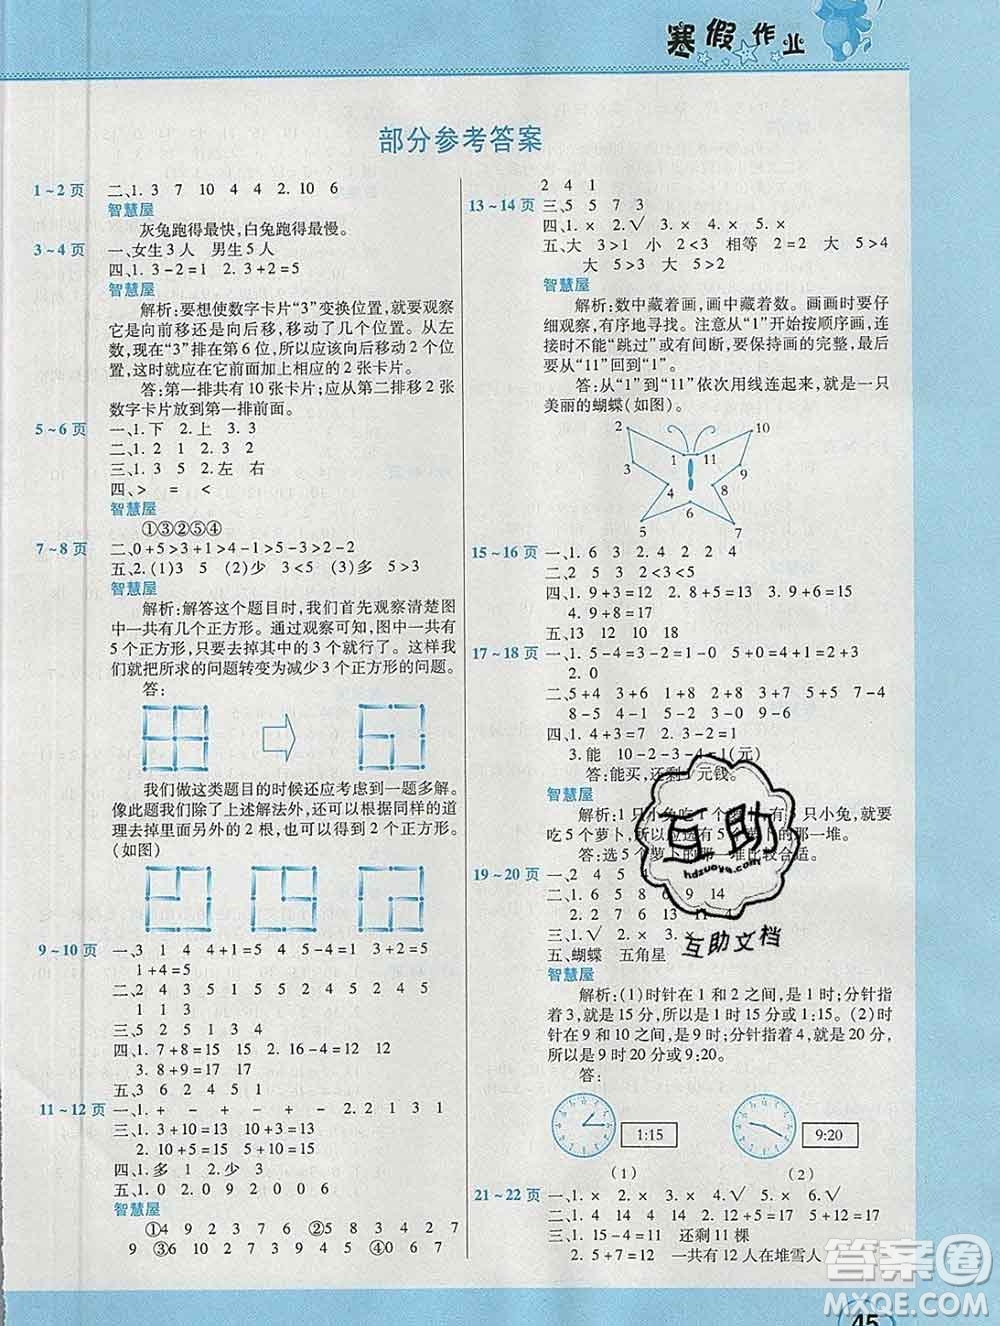 寒假作业
部分参考答案
1~2页 二、1. 3 7 10 4 4 2. 10 6
智慧屋
灰兔跑得最快,白兔跑得最慢。
3~4页 一、女生3人 男生5人
四、1. 3-2=1 2. 3+2=5
智慧屋
解析:要想使数字卡片“3”变换位置,就要观察
它是向前移还是向后移,移动了几个位置。从左
数,现在“3”排在第6位,所以应该向后移动2个位
置,这时就应该在它前面加上相应的2张卡片。
答:第一排共有10张卡片;应从第二排移2张
数字卡片放到第一排前面。
5~6页 一、1. 下 2. 上 3. 3
二、1. 2 1 2. 4
三、1. 3 5 2. 左 右
四、> = <
智慧屋
①③②⑤④
7~8页 二、0+5>3+1>5-1>5-3>2-2
五、2. (1)3 5 (2)少 (3)多 5>3
智慧屋
解析:解答这个题目时,我们首先观察清楚图
中一共有几个正方形。通过观察可知,图中共有
5个正方形,只要去掉其中的3个就行了。这样我
们就把所求的问题转变为减少3个正方形的问题。
答:
我们做这类题目的时候还应考虑到一题多解。
像此题我们除了上述解法外,还可以根据同样的道
理去掉里面另外的2根,也可以得到2个正方形。
(如图)
9~10页 一、3 1 4 4+1=5 5 4 1 3+2=5
1+4=5
二、2 4 3 4 5 1 5 5 5 2 2 5
1 1 3
三、5 2 5 1 3 4
四、1. 7+8=15 15 2. 16-4=12 12
3. 8+9=17 17
五、3 6 2 4 5 1
11~12页 一、1. + - + - 2. 2 1 3 1
三、1. 3+10=13 10+3=13
2. 10+5=15 5+10=15
四、1. 多 1 2. 少 3
五、1. 0 9 2. 9 0 0 0 6
智慧屋
①4 9 2 7 6 ②5 8 3 4 2 7
9 ③6 2 7 3 2 ④0 6 7 4 2 8
2 4 1
13~14页 三、5 5 7 3
四、1. × 2. √ 3. × 4. × 5. ×
五、大 3>1 小 2<3 相等 2=2 大 5>4
大 5>3 大 5>3
智慧屋
解析:数中藏着画,画中藏着数。画画时要仔
细观察,有序地寻找。注意从“1”开始按顺序画,
连接时不能“跳过”或有间断,要保持画的完整,最
后要从“11”回到“1”。
答:从“1”到“11”依次用线连起来,就是一只
美丽的蝴蝶(如图)。
2 10
3 1 11 9
4 6 8
5 7
15~16页 一、1. 6 3 2. 4 2 2 4
四、1. 9+3=12 2. 7+8=15 3. 9+4=13
4. 9+8=17
五、13 12 10 18
17~18页 一、1. 5-4=3-2 5+0=4+1=2+3
2. 0
二、5+4 9+0 7+2 2+5 3+4 7+0
三、1. 8-5 4-1 5-2 3-0 9-6
四、1. 4+3=7 2. 3-2=1
3. 能 10-2-3-4=1(元)
答:能买,还剩1元钱。
智慧屋
解析:1只小兔吃1个萝卜,有5只小兔,就要
吃5个萝卜,所以应选有5个萝卜的那一堆。
答:选5个萝卜的那一堆比较合适。
19~20页
五、蝴蝶 五角星
智慧屋
解析:(1)时针在1和2之间,是1时;分针指
着3,就是15分,所以是1时15分或1:15。(2)时
针在9和10之间,是9时;分针指着4,就是20分,
所以是9时20分或9:20。
答:
1:15 9:20
(1) (2)
21~22页 一、1. × 2. × 3. × 4. √ 5. √
二、1. 14 4 14 14 2. 12 12
三、1. 15-4=11 还剩11棵
2. 5+7=12 一共有12人在堆雪人
互助
hdzuoye.com
互助文档
答案圈
MXQE.COM
45